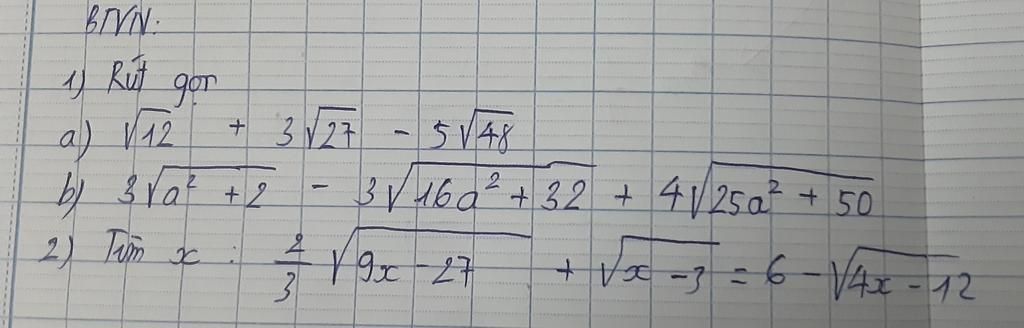 BTVN:
1) Rút gọn
a) √12 + 3√27 - 5√48
b) 3√(a² + 2) - 3√(16a² + 32) + 4√(25a² + 50)
2) Tìm x : 2/3 √(9x - 27) + √(x - 3) = 6 - √(4x - 12)